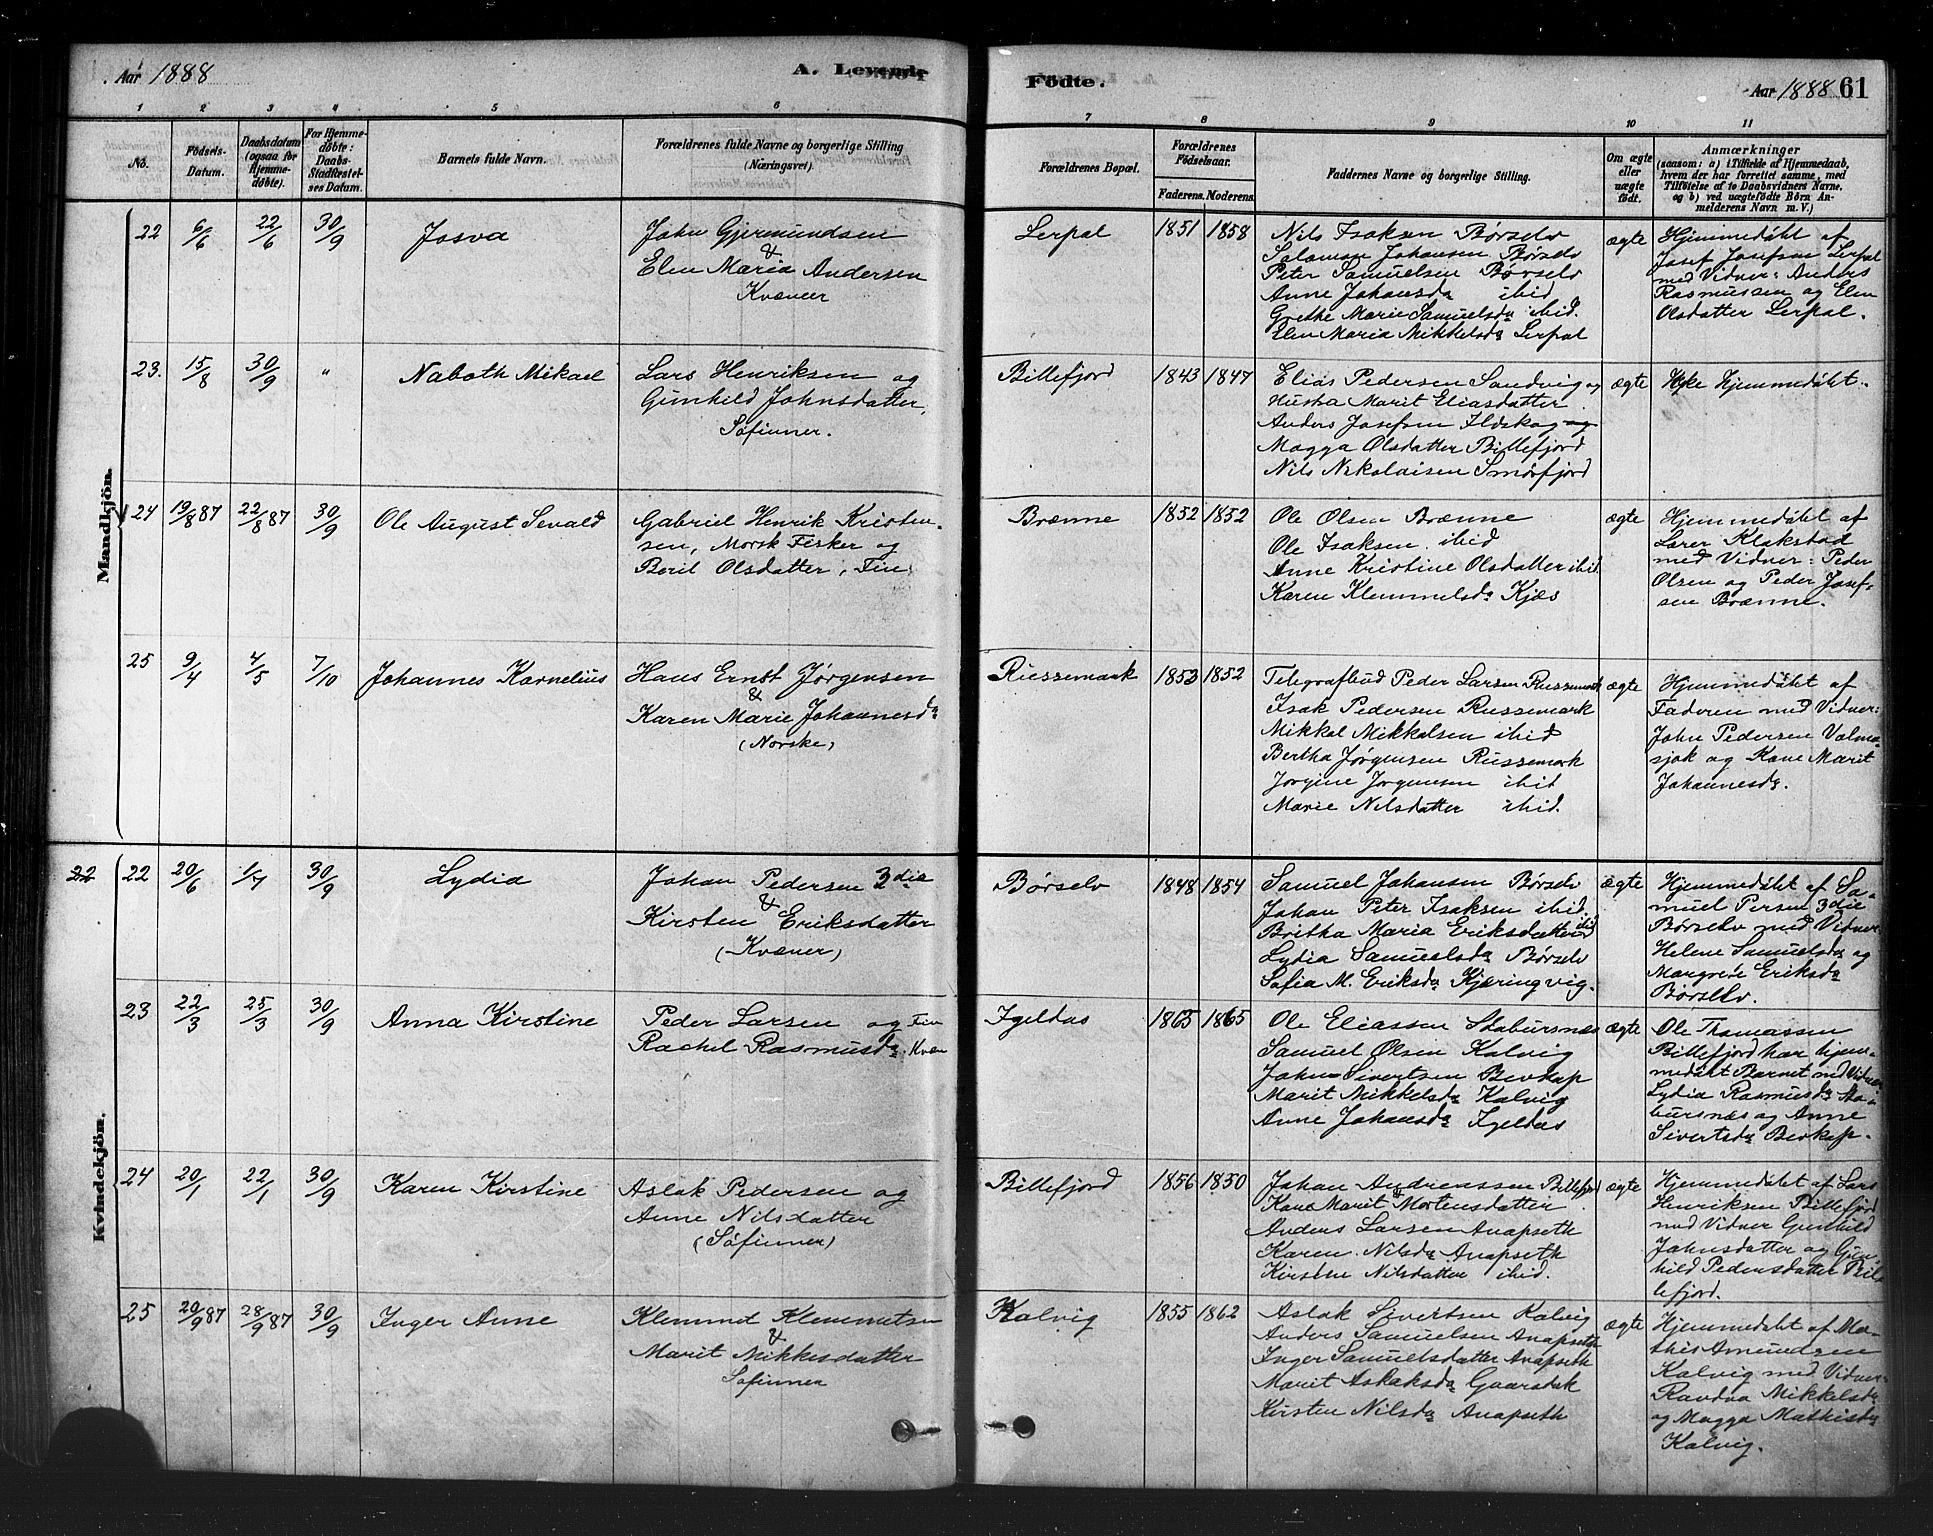 Aar 1888 A. Levende Födte. Aar 1888 61
1 2 3 4 5 6 7 8 9 10 11
No.
Födsels-
Datum.
Daabsdatum
(ogsaa for
Hjemme-
döbte).
For Hjemme-
döbte:
Daabs-
Stadfæstel-
ses Datum.
Barnets fulde Navn.
Forældrenes fulde Navne og borgerlige Stilling
(Næringsvei).
Forældrenes Bopæl.
Forældrenes
Födselsaar.
Faderens. Moderens.
Faddernes Navne og borgerlige Stilling.
Om ægte
eller
uægte
födt.
Anmærkninger
(saasom: a) i Tilfælde af Hjemmedaab,
hvem der har forrettet samme, med
Tilföielse af to Daabsvidners Navne,
og b) ved uægtefödte Börn An-
melderens Navn m. V.)
Mandkjön.
22 6/6 22/6 30/9 Josva
John Gjermundsen
&
Elen Maria Andersen
Kvæner
Lerpal 1851 1858
Nils Isaksen Børselv
Salomon Johansen Børselv
Peter Samuelsen Børselv
Anne Johansda ibid
Grethe Marie Samuelsda ibid.
Elen Maria Mikkelsda Lerpal
ægte
Hjemmedøbt af
Josef Josefsen Lerpal
med Vidner: Anders
Rasmussen og Elen
Olsdatter Lerpal.
23. 15/8 30/9 " Naboth Mikael
Lars Henriksen og
Gunhild Johnsdatter,
Søfinner.
Billefjord 1843 1847
Elias Pedersen Sandvig og
Hustru Marit Eliasdatter
Anders Josefsen Ildskog og
Magga Olsdatter Billefjord
Nils Nikolaisen Smørfjord
ægte
Ikke Hjemmedøbt.
24 19/8 87 22/8 87 30/9 Ole August Sevald
Gabriel Henrik Kristen-
sen, Norsk Fisker og
Beril Olsdatter, Fin.
Brænne 1852 1852
Ole Olsen Brænne
Ole Isaksen ibid
Anne Kristine Olsdatter ibid.
Karen Klemmetsda Kjæs
ægte
Hjemmedøbt af
Lærer Klakstad
med Vidner: Peder
Olsen og Peder Josef-
sen Brænne.
25 9/4 4/5 7/10 Johannes Kornelius
Hans Ernst Jørgensen
&
Karen Marie Johannesda
(Norske)
Russemark 1853 1852
Telegrafbud Peder Larsen Russemark
Isak Pedersen Russemark
Mikkel Mikkelsen ibid
Bertha Jørgensen Russemark
Jorgine Jørgensen ibid
Marie Nilsdatter ibid.
ægte
Hjemmedøbt af
Faderen med Vidner:
John Pedersen Valma-
sjok og Kone Marit
Johannesda.
Kvindekjön.
22 22 20/6 1/7 30/9 Lydia
Johan Pedersen 3die
&
Kirsten Eriksdatter
(Kvæner)
Børselv 1848 1854
Samuel Johansen Børselv
Johan Peter Isaksen ibid
Britha Maria Eriksdatter ibid
Lydia Samuelsda Børselv
Sofia M. Eriksda Kjæringvig.
ægte
Hjemmedøbt af Sa-
muel Persen 3die
Børselv med Vidner
Helene Samuelsda og
Margrete Eriksda
Børselv.
23 22/3 25/3 30/9 Anna Kirstine
Peder Larsen og Fin
Rachel Rasmusda. Kvæn
Igeldas 1865 1865
Ole Eliassen Stabursnæs
Samuel Olsen Kalvig
John Sivertsen Bevkap
Marit Mikkelsda Kalvig
Anne Johansda Igeldas
ægte
Ole Thomassen
Billefjord har hjem-
medøbt Barnet med Vidner
Lydia Rasmusda Sta-
bursnæs og Anne
Sivertsda Bevkap.
24 20/1 22/1 30/9 Karen Kirstine
Aslak Pedersen og
Anne Nilsdatter
(Søfinner)
Billefjord 1856 1850
Johan Andreassen Billefjord
Kone Marit Mortensdatter
Anders Larsen Anapseth
Karen Nilsda Anapseth
Kirsten Nilsdatter ibid.
ægte
Hjemmedøbt af Lars
Henriksen Billefjord
med Vidner Gunhild
Johnsdatter og Gun-
hild Pedersdatter Bil-
lefjord.
25 20/9 87 28/9 87 30/9 Inger Anne
Klemmet Klemmetsen
&
Marit Mikkelsdatter
Søfinner
Kalvig 1855 1862
Aslak Sivertsen Kalvig
Anders Samuelsen Anapseth
Inger Samuelsdatter Anapseth
Marit Aslaksda Gaarstak
Kirsten Nilsda Anapseth
ægte
Hjemmedøbt af Ma-
this Amundsen
Kalvig med Vidner
Ravdna Mikkelsda
og Magga Mathisda
Kalvig.